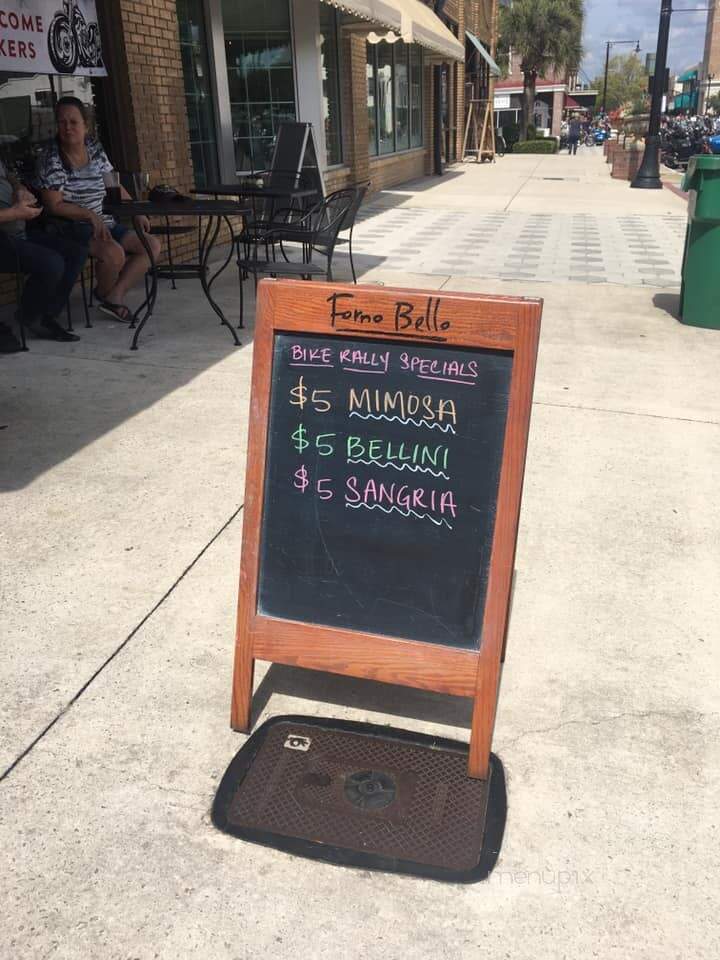 COME
KERS
Forno Bello
BIKE RALLY SPECIALS
$5 MIMOSA
$5 BELLINI
$5 SANGRIA
menupix